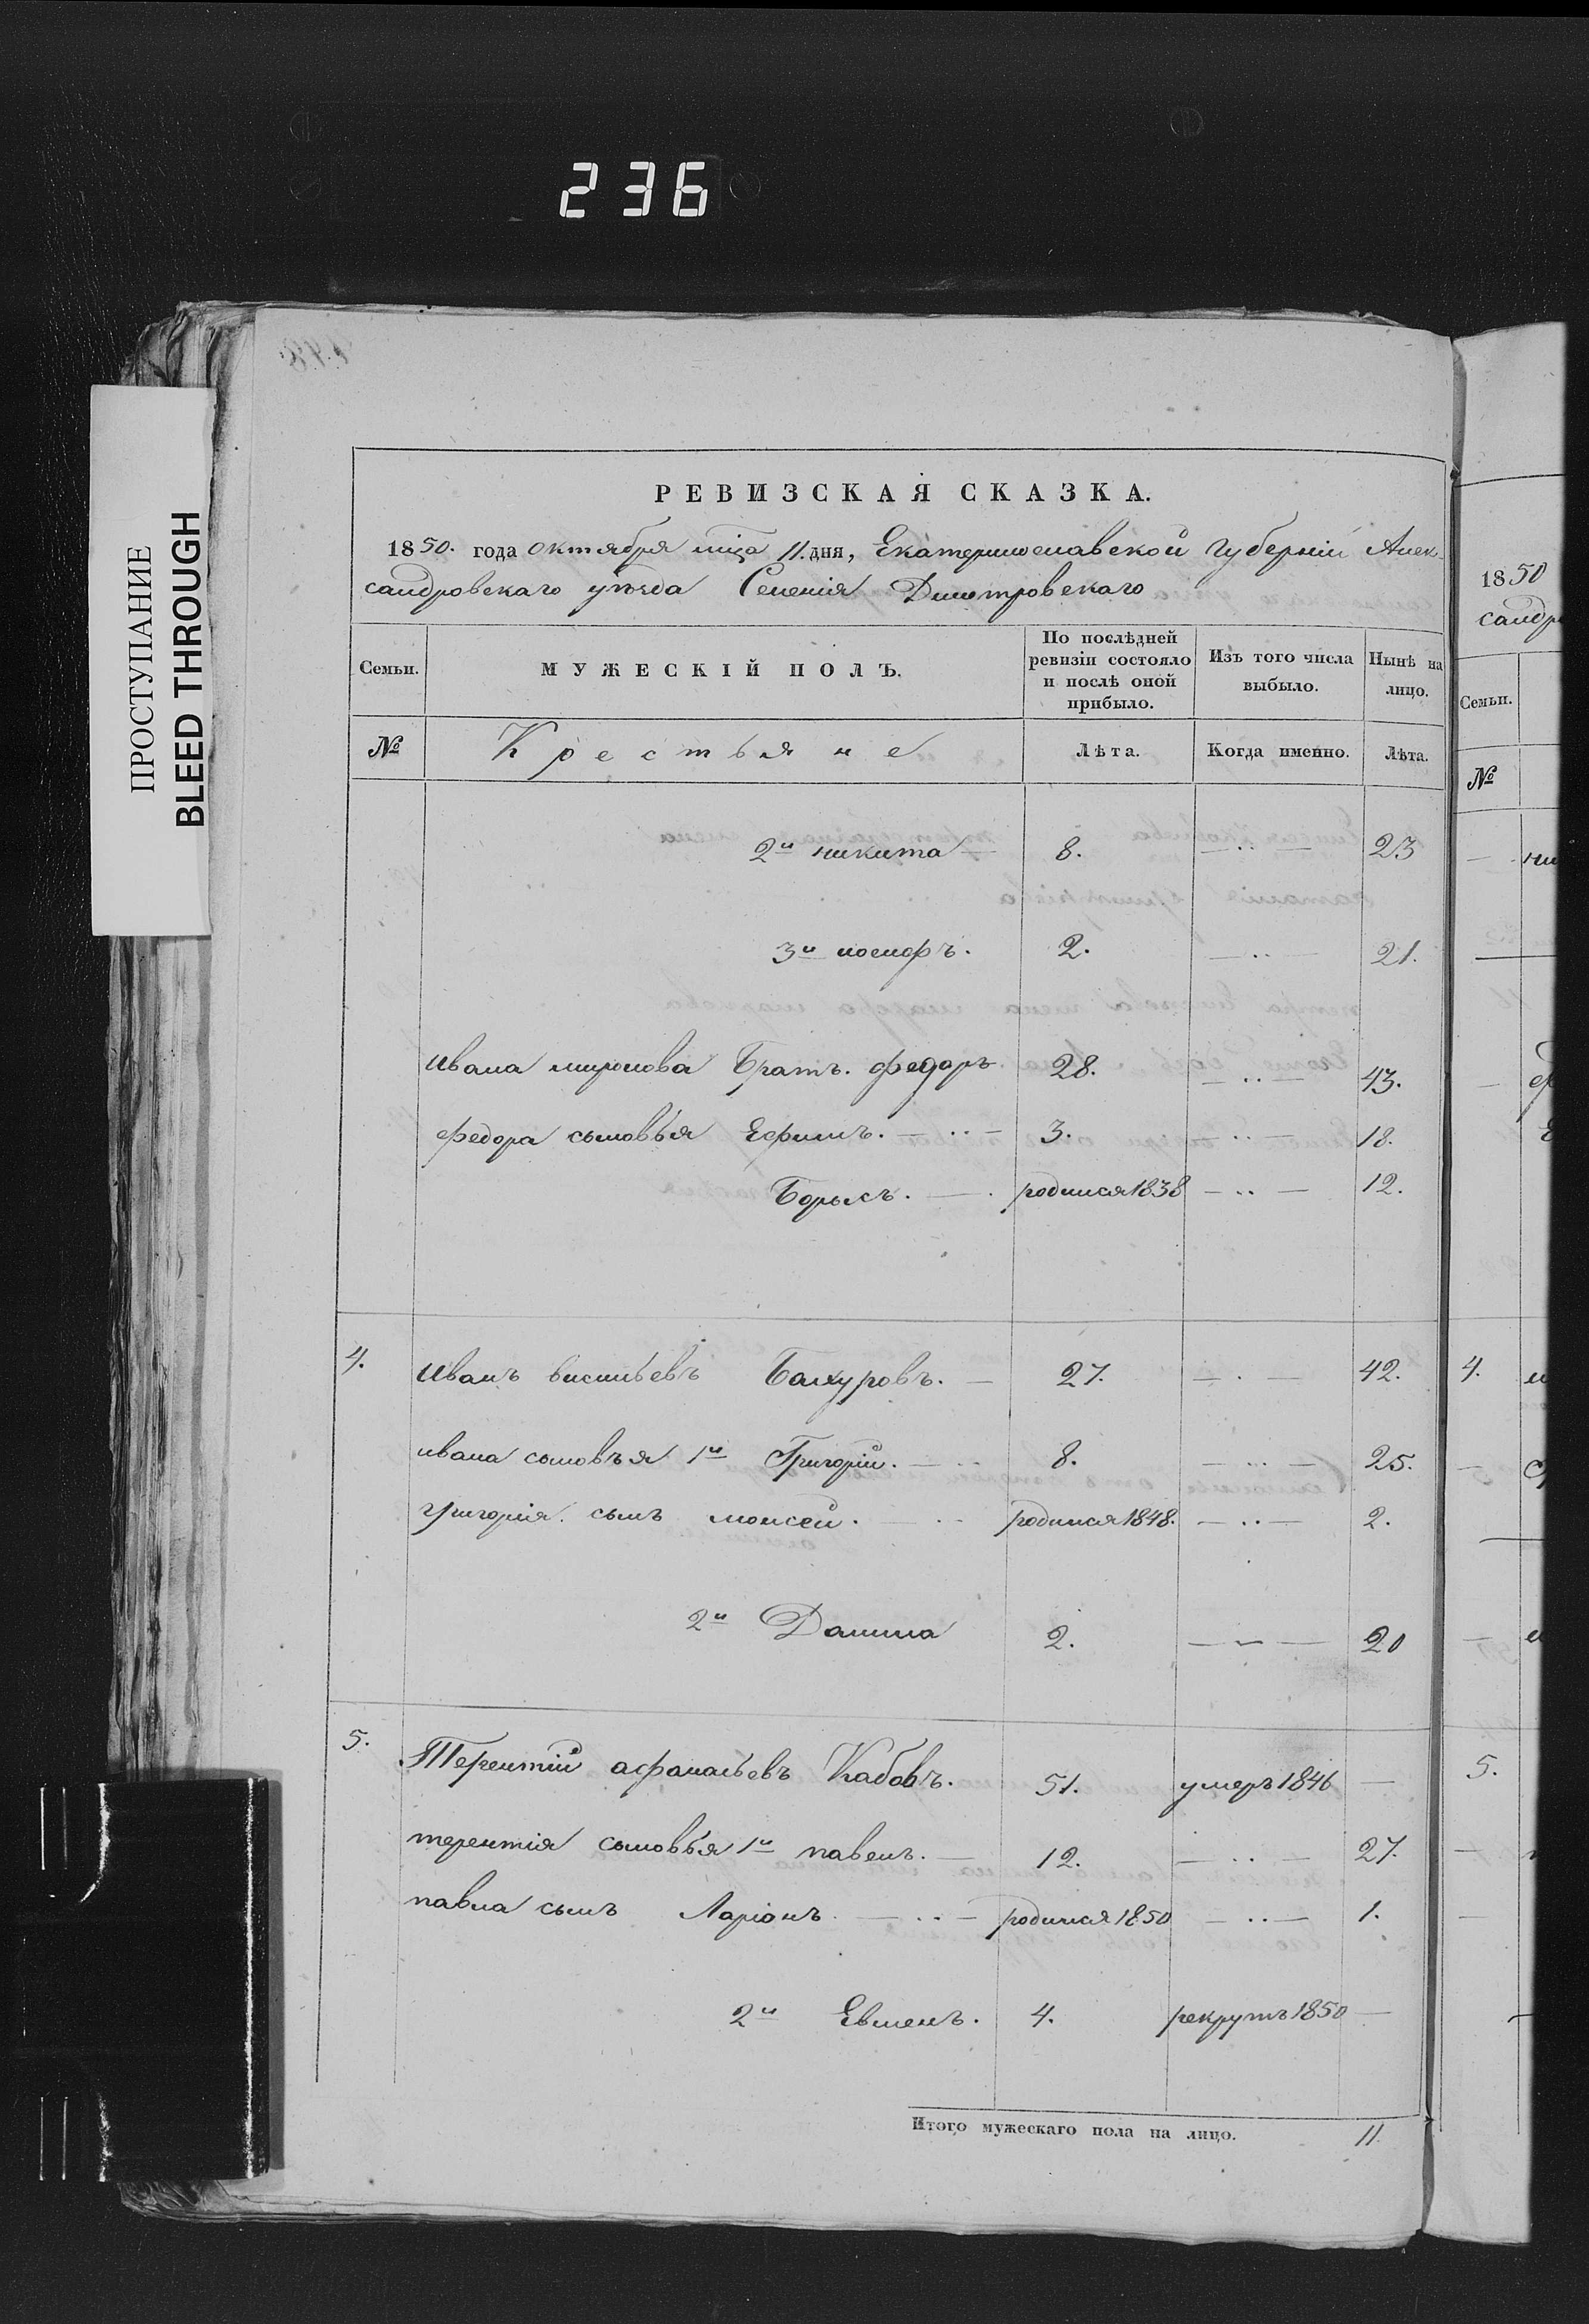 236
ПРОСТУПАНИЕ
BLEED THROUGH
РЕВИЗСКАЯ СКАЗКА.
1850. года октября мца 11. дня, Екатеринославской Губерніи Алек-
сандровскаго уѣзда Селенія Дмитровскаго
Семьи. МУЖЕСКІЙ ПОЛЪ. По послѣдней ревизіи состояло и послѣ оной прибыло. Изъ того числа выбыло. Нынѣ на лицо.
№ Крестьяне Лѣта. Когда именно. Лѣта.
2й никита — 8. — .. — 23
3й иосифъ. 2. — .. — 21.
Ивана миронова Братъ. федоръ 28. — .. — 43.
федора сыновья Ефимъ. — .. — 3. — .. — 18.
Борысъ. — . родился 1838 — .. — 12.
4. Иванъ Бахуровъ. — 27. — . — 42.
ивана сыновъя 1й Григорій. — .. 8. — .. — 25.
григорія. сынъ моисей. — .. родился 1848. — .. — 2.
2й Данила 2. — — 20
5. Терентій афанасьевъ Кабовъ. 51. умеръ 1846 —
терентія сыновья 1й павелъ. — 12. — .. — 27.
павла сынъ Ларіонъ. — .. — родился 1850 — .. — 1.
2й Евменъ. 4. рекрутъ 1850 —
Итого мужескаго пола на лицо. 11.
1850
сандр
Семьи.
№
4.
5.